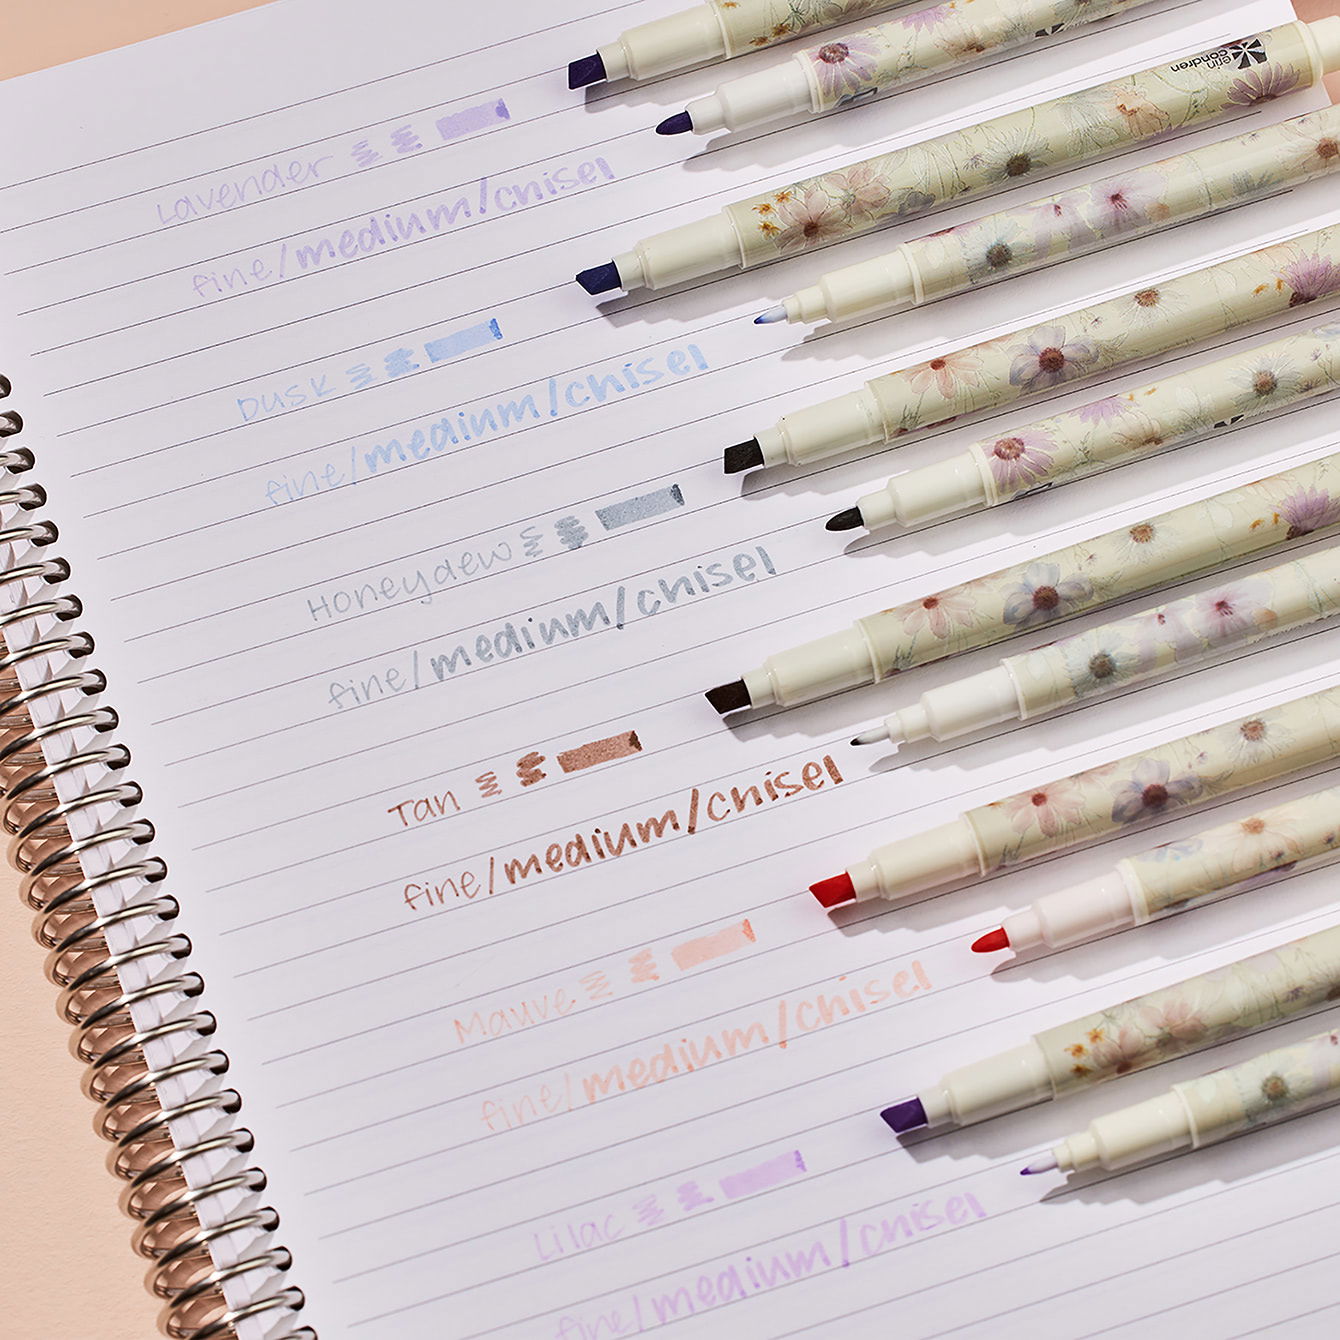 erin
condren
Lavender
fine/medium/chisel
Dusk
fine/medium/chisel
Honeydew
fine/medium/chisel
Tan
fine/medium/chisel
Mauve
fine/medium/chisel
Lilac
fine/medium/chisel